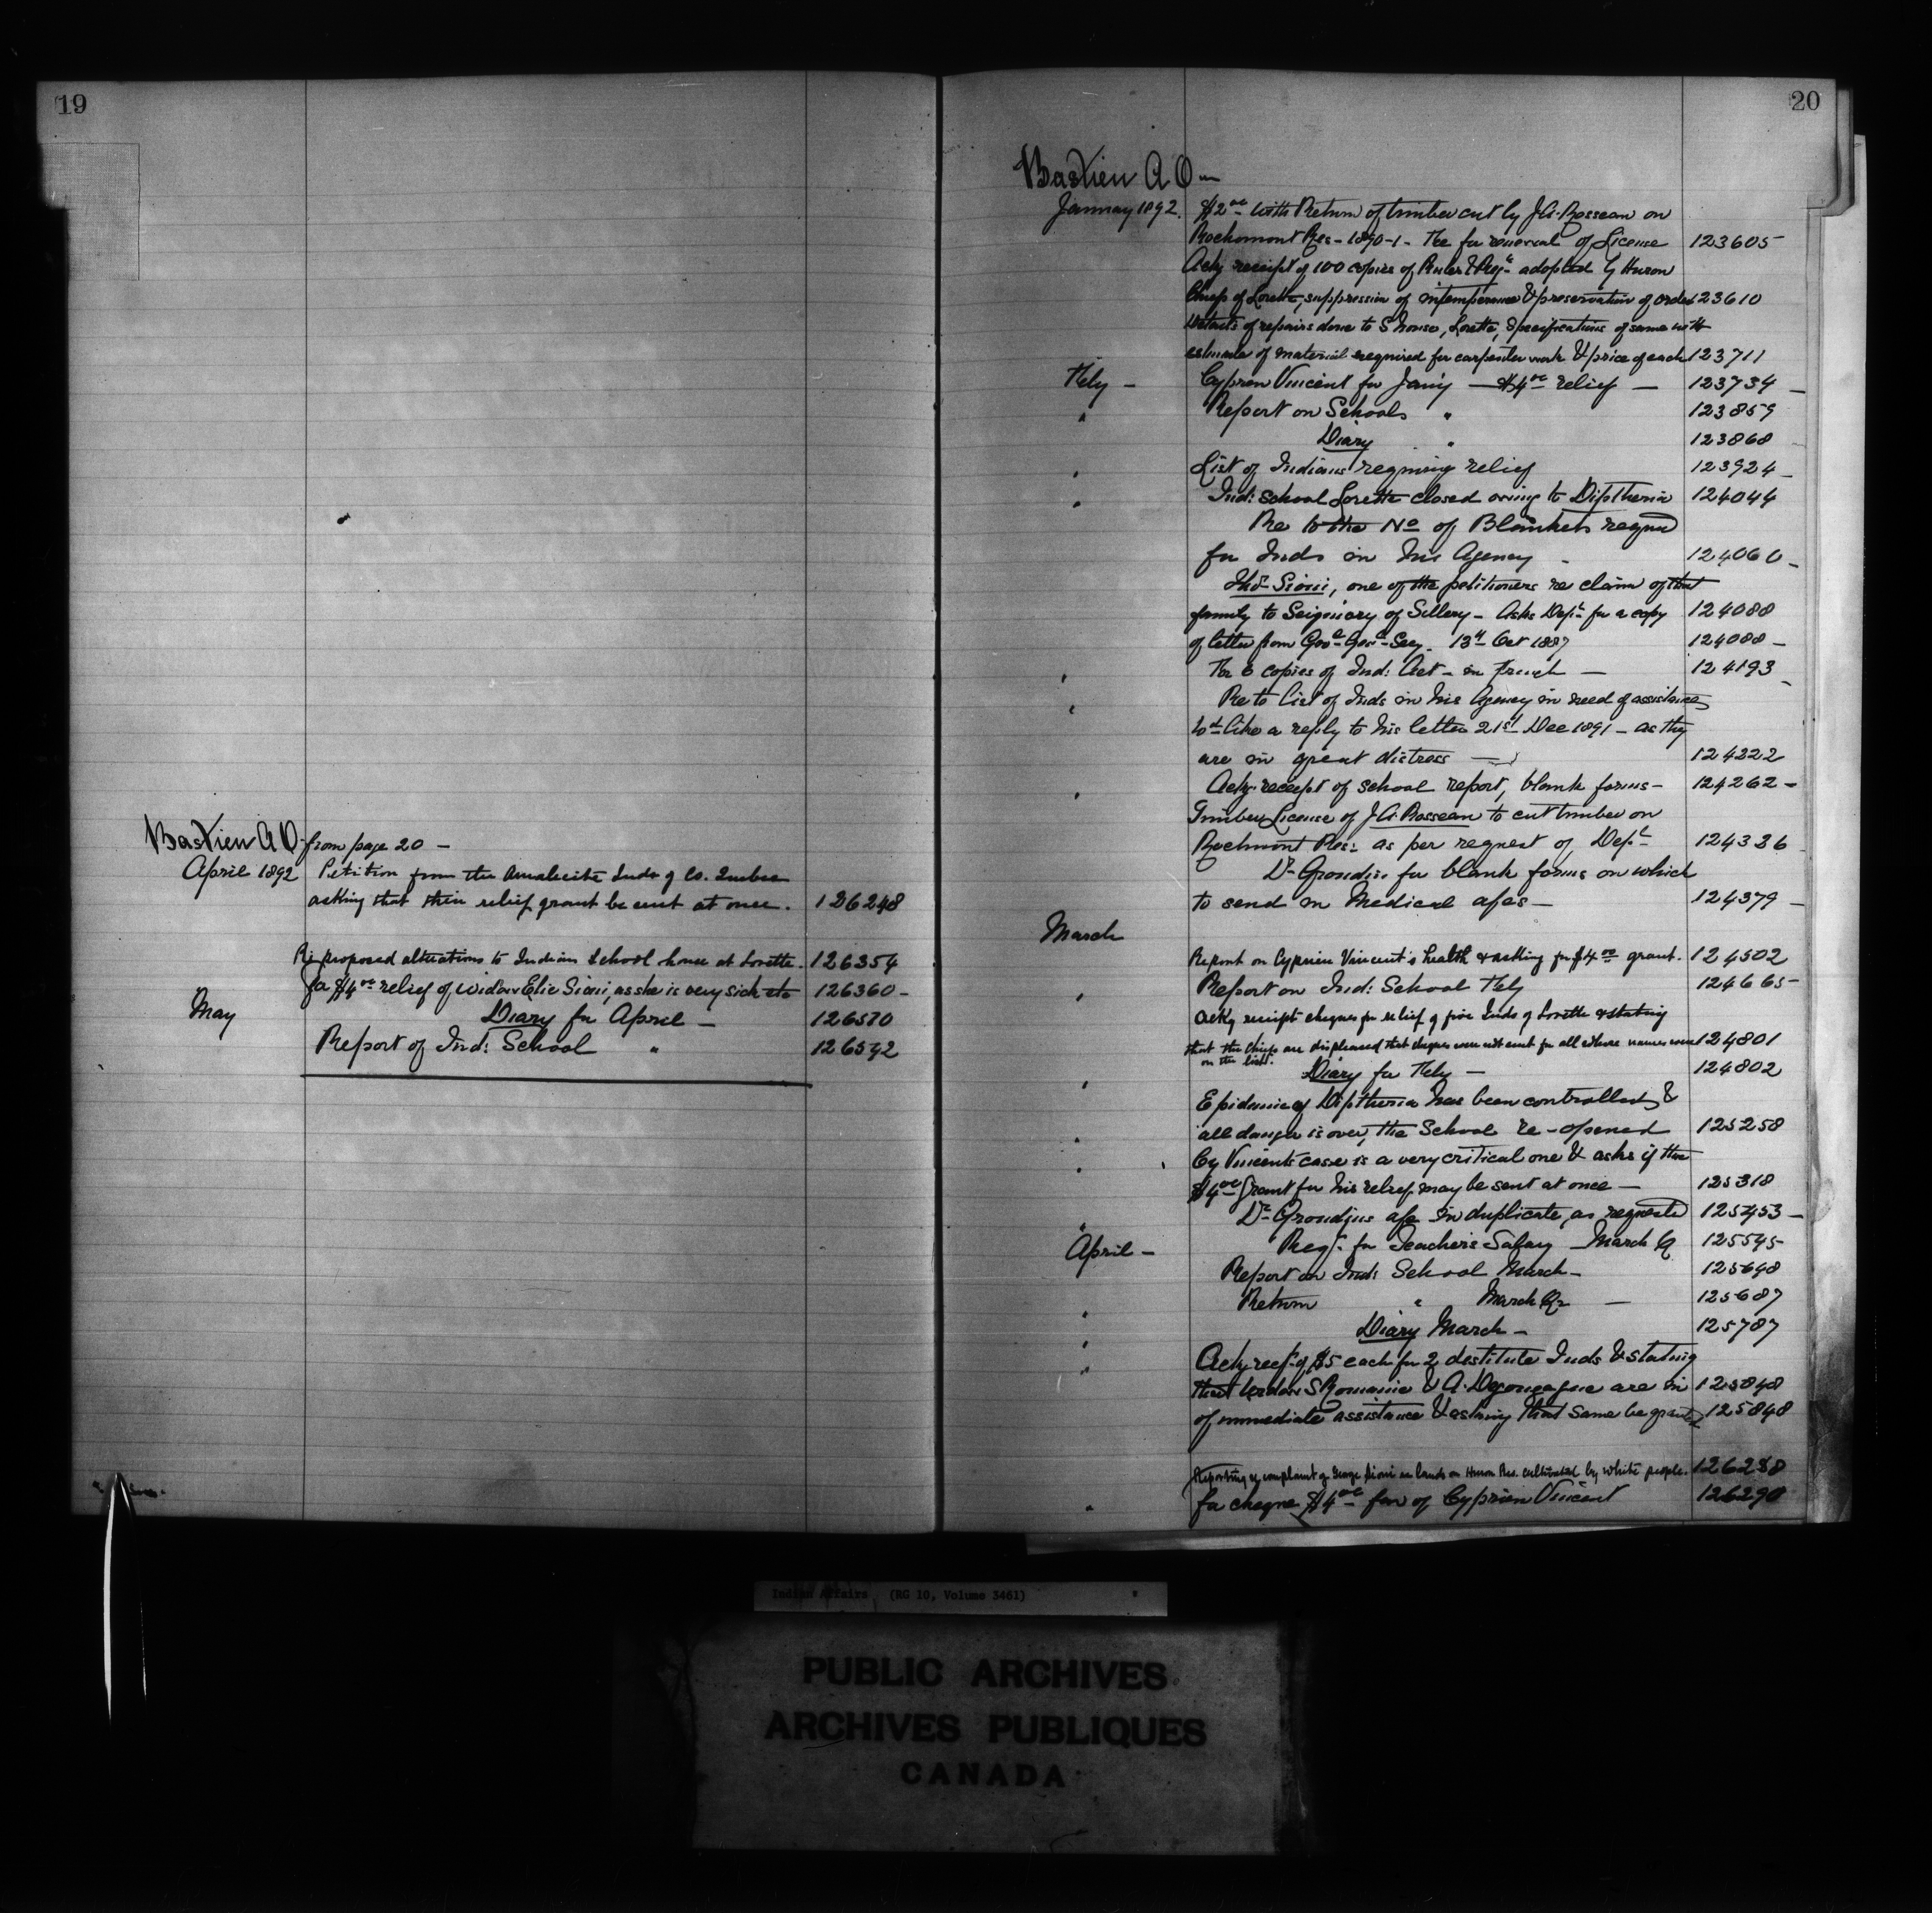 19
Bastien A O. from page 20 —
April 1892 Petition from the Amalecite Inds of Co. Quebec
asking that their relief grant be sent at once. 126248
Re proposed alterations to Indian School house at Lorette. 126354
for $4.00 relief of widow Elie Sioui, as she is very sick etc 126360 -
May Diary for April — 126570
Report of Ind: School " 126592
20
Bastien A O —
January 1892. $2.00 with Return of timber cut by J.G. Rosseau on
Rockmont Res - 1890-1 - the for renewal of License 123605
Ackg receipt of 100 copies of Rules & Regs. adopted by Huron
Chiefs of Lorette, suppression of intemperance & preservation of order 123610
Details of repairs done to S house, Lorette, specifications of same with
estimate of material required for carpenter work & price of each 123711
Feby — Cyprien Vincent for Jan'y — $4.00 relief — 123734 —
" Report on Schools " 123859
Diary " 123868
" List of Indians requiring relief 123924 —
" Ind: School Lorette closed owing to Diptheria 124044
Re to the No of Blankets reqd
for Inds in his Agency - 124060 -
Thos. Sioui, one of the petitioners re claim of that
family to Seigniory of Sillery - Asks Dept. for a copy 124088
of letter from Gov. Gen. Secy. 13th Oct 1887 124088 —
" For 6 copies of Ind: Act - in French — 124193 -
" Re to list of Inds in his Agency in need of assistance,
wd like a reply to his letter 21st Dec 1891 - as they
are in great distress — 124222
" Ackg receipt of school report, blank forms - 124262 -
Timber License of J.G. Rosseau to cut timber on
Rockmont Res: as per request of Dept. 124336
Dr Grondin for blank forms on which
to send in Medical a/cs — 124379 —
March
Report on Cyprien Vincent's health & asking for $4.00 grant. 124502
" Report on Ind: School Feby 124665
Ackg receipt cheques for relief of five Inds of Lorette & stating
that the Chiefs are displeased that cheques were not sent for all whose names were 124801
on the list.
" Diary for Feby — 124802
Epidemic of Diptheria has been controlled, &
" all danger is over, the School re-opened 125258
" Cy Vincents case is a very critical one & asks if the
$4.00 grant for his relief may be sent at once — 125318
" Dr Grondins a/c in duplicate, as requested 125453 —
April — Reqn. for Teachers Salary — March Q 125545
Report on Ind: School March — 125648
" Return " March Qr — 125687
" Diary March — 125787
" Ackg rect. of $5 each for 2 destitute Inds & stating
that Widow S Romanie & A. Degonzague are in 125848
of immediate assistance & asking that same be granted 125848
Reporting re complaint of George Sioui re lands on Huron Res. cultivated by white people. 126238
" for cheque $4.00 fav of Cyprien Vincent 126290
Indian Affairs (RG 10, Volume 3461)
PUBLIC ARCHIVES
ARCHIVES PUBLIQUES
CANADA